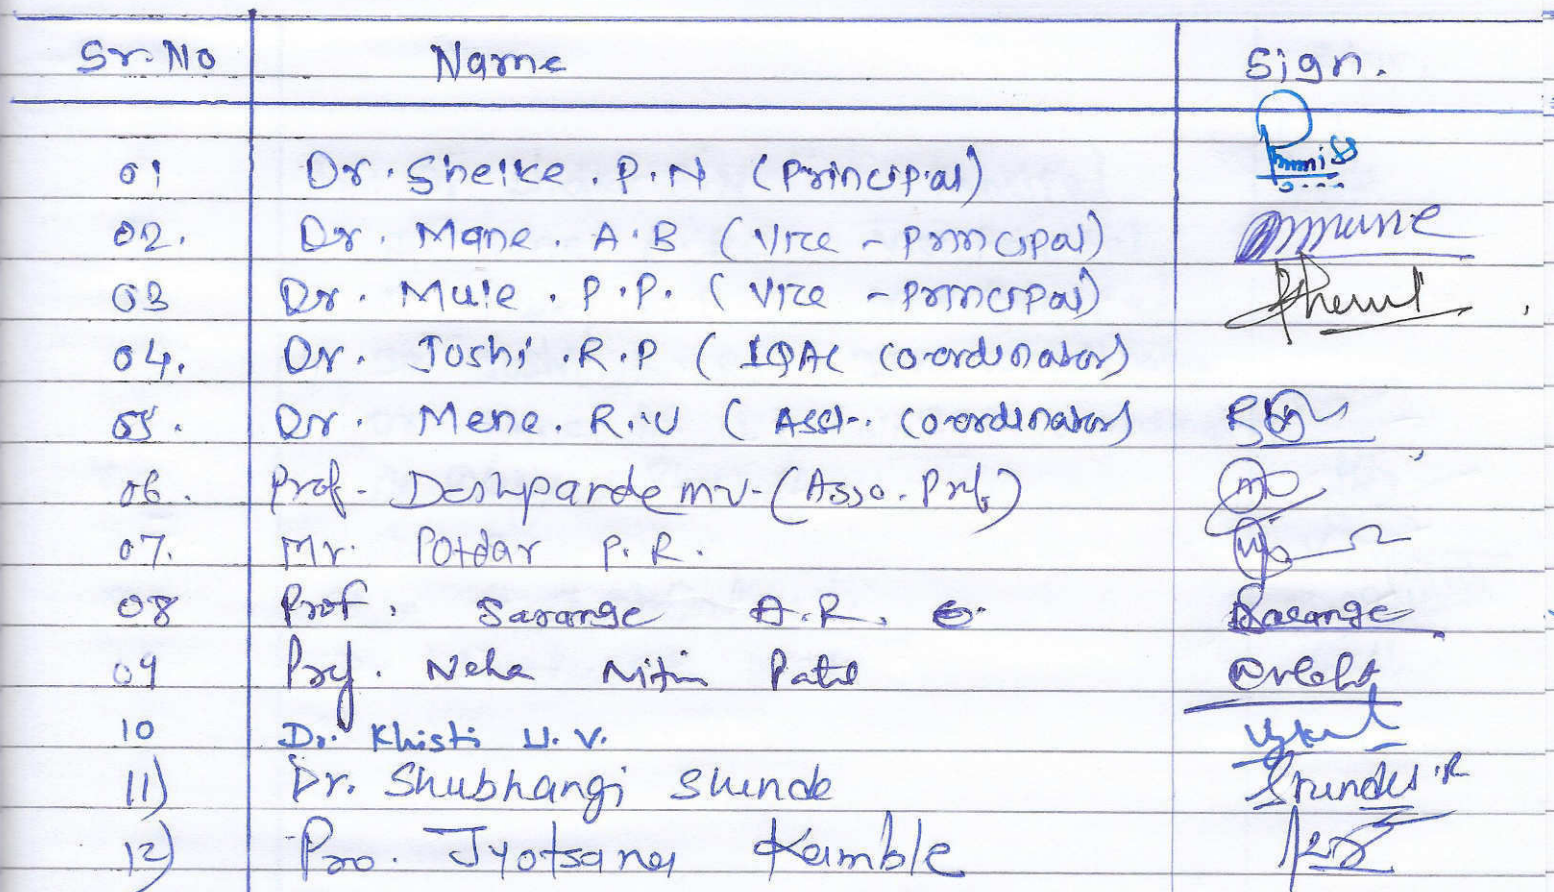 Sr. No Name Sign.
01 Dr. Sheike. P. N (Principal)
02. Dr. Mane. A. B (Vice - principal)
03 Dr. Mule. P. P. (Vice - principal)
04. Dr. Joshi. R. P (IQAC Co-ordinator)
05. Dr. Mene. R. U (Asst. Co-ordinator)
06. Prof. Deshpande M.V. (Asso. Prf.)
07. Mr. Potdar P. R.
08 Prof. Sarange A. R. Sarange
09 Prof. Neha Nitin Patil
10 Dr. Khisti U. V.
11) Dr. Shubhangi Shinde
12) Pro. Jyotsana Kamble